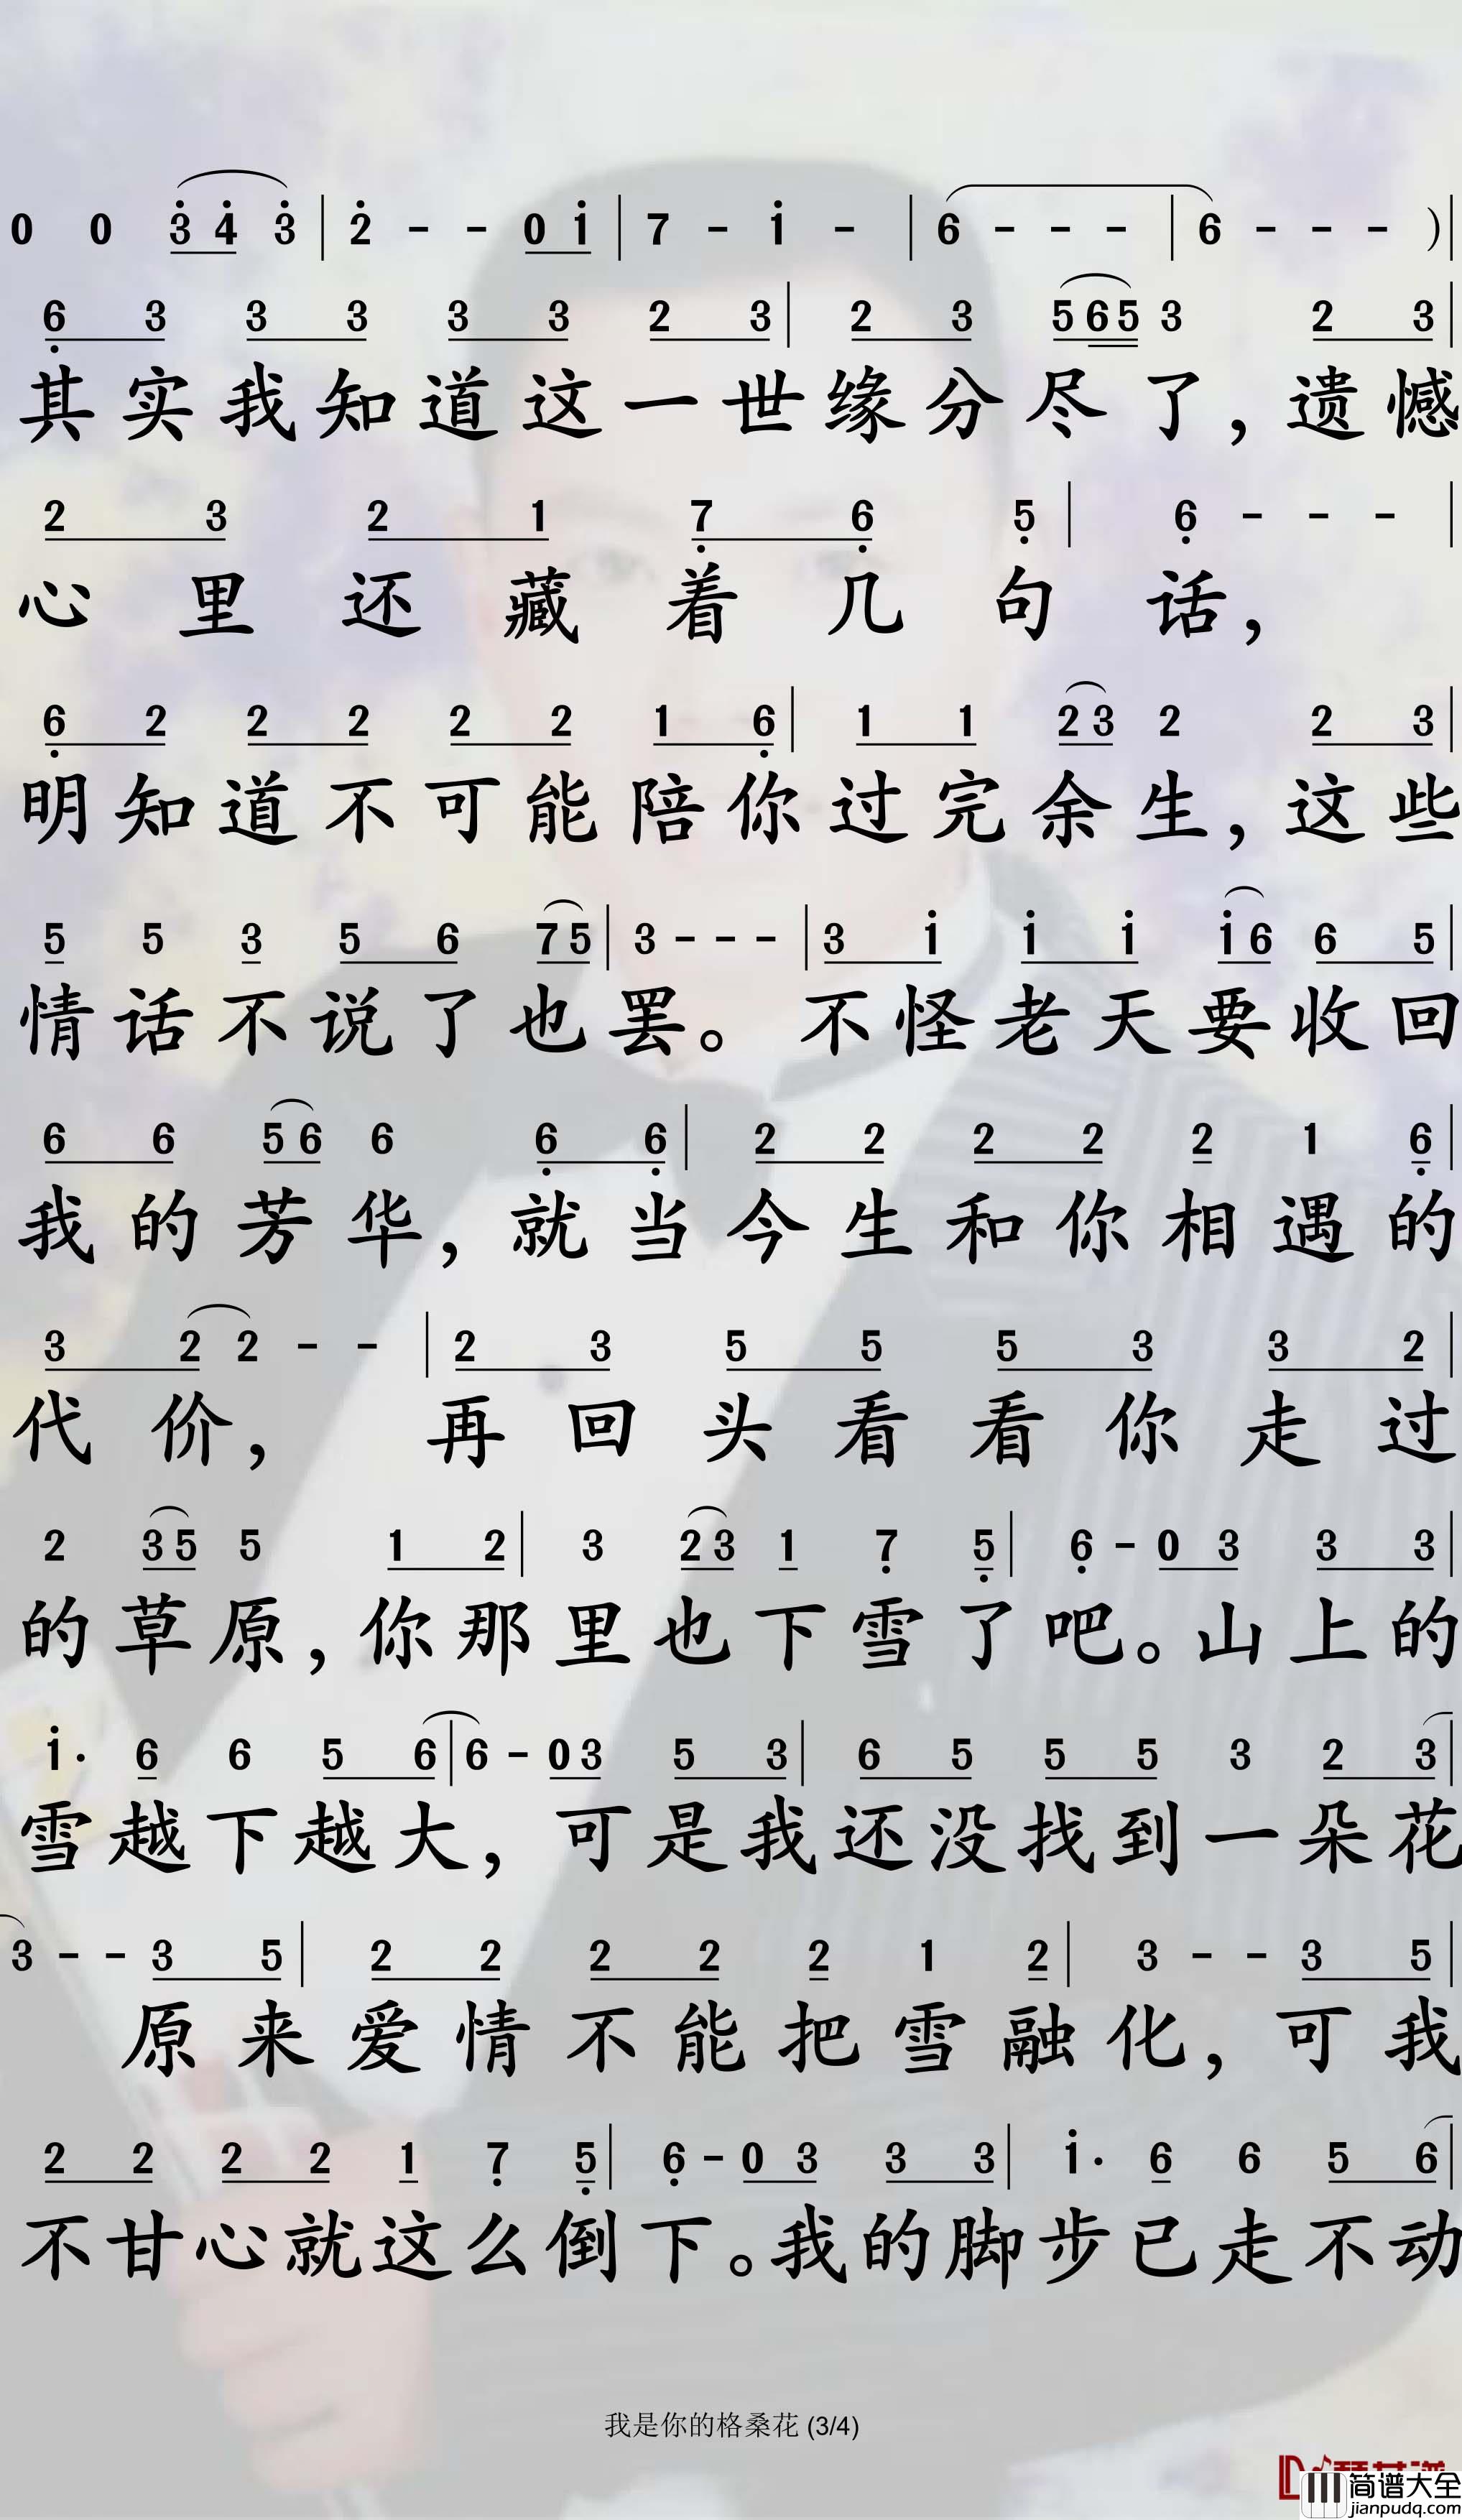 0 0 3 4 3 | 2 - - 0 1 | 7 - 1 - | 6 - - - | 6 - - - ) |
6 3 3 3 3 3 2 3 | 2 3 5 6 5 3 2 3 |
其实我知道这一世缘分尽了，遗憾
2 3 2 1 7 6 5 | 6 - - - |
心里还藏着几句话，
6 2 2 2 2 2 1 6 | 1 1 2 3 2 2 3 |
明知道不可能陪你过完余生，这些
5 5 3 5 6 7 5 | 3 - - - | 3 1 1 1 1 6 6 5 |
情话不说了也罢。不怪老天要收回
6 6 5 6 6 6 6 | 2 2 2 2 2 1 6 |
我的芳华，就当今生和你相遇的
3 2 2 - - | 2 3 5 5 5 3 3 2 |
代价，再回头看看你走过
2 3 5 5 1 2 | 3 2 3 1 7 5 | 6 - 0 3 3 3 |
的草原，你那里也下雪了吧。山上的
1 · 6 6 5 6 | 6 - 0 3 5 3 | 6 5 5 5 3 2 3 |
雪越下越大，可是我还没找到一朵花
3 - - 3 5 | 2 2 2 2 2 1 2 | 3 - - 3 5 |
原来爱情不能把雪融化，可我
2 2 2 2 1 7 5 | 6 - 0 3 3 3 | 1 · 6 6 5 6 |
不甘心就这么倒下。我的脚步已走不动
我是你的格桑花 (3/4)
简谱大全
jianpudq.com